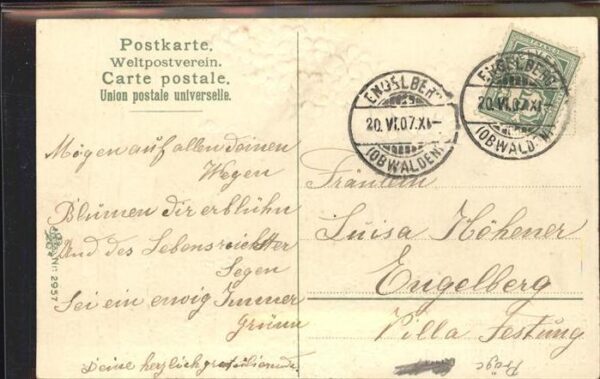 Postkarte.
Weltpostverein.
Carte postale.
Union postale universelle.
ENGELBERG
20.VI.07.XI–
(OBWALDEN)
ENGELBERG
20.VI.07.XI–
(OBWALDEN)
Mögen auf allen deinen
Wegen
Blumen dir erblühn
Und des Lebens reichster
Segen
Sei ein ewig Immer
Grünn
Deine herzlich gratulierende
Fräulein
Luisa Höhener
Engelberg
Villa Festung
Nr. 2957